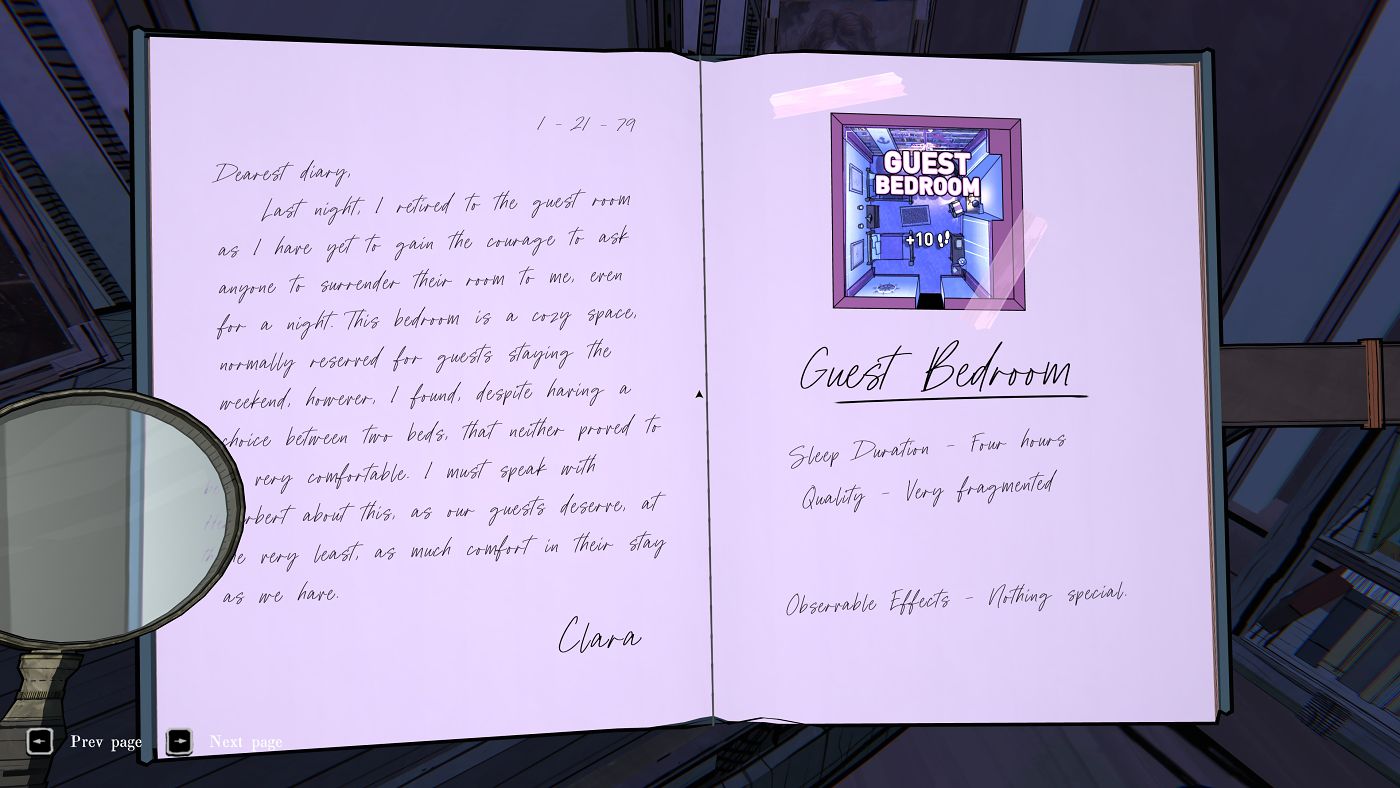 1 - 21 - 79
Dearest diary,
Last night, I retired to the guest room
as I have yet to gain the courage to ask
anyone to surrender their room to me, even
for a night. This bedroom is a cozy space,
normally reserved for guests staying the
weekend, however, I found, despite having a
choice between two beds, that neither proved to
very comfortable. I must speak with
Herbert about this, as our guests deserve, at
the very least, as much comfort in their stay
as we have.
Clara
GUEST
BEDROOM
+10
Guest Bedroom
Sleep Duration - Four hours
Quality - Very fragmented
Observable Effects - Nothing special.
Prev page
Next page